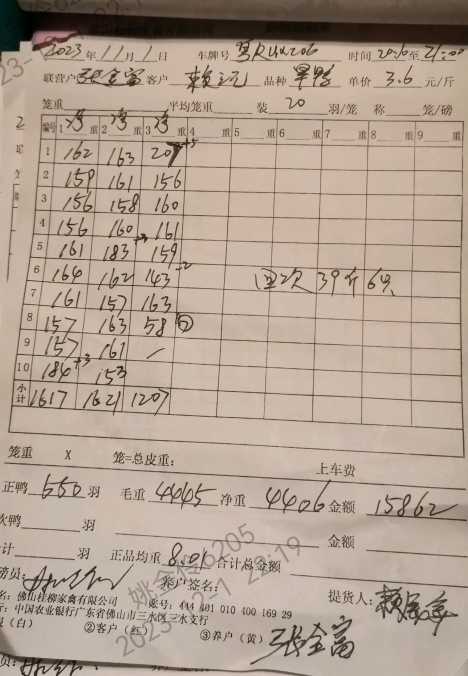 2023年11月1日 车牌号 时间20:10至21:00
联营户张全富 客户 赖 品种 单价3.6元/斤
笼重 平均笼重 装20羽/笼 称 笼/磅
编号 1 湾 重 2 湾 重 3 湾 重 4 重 5 重 6 重 7 重 8 重 9 重
1 162 163 207 +5
2 159 161 156
3 156 158 160
4 156 160 161
5 161 183 +3 159
6 164 162 143 -2 四次39斤6只
7 161 157 163
8 157 163 58 ⑦
9 157 161 /
10 184 +3 153
小计 1617 1621 1207
笼重 X 笼=总皮重:
上车费
正鸭550羽 毛重4445 净重4406 金额15862
次鸭 羽 金额
计 羽 正品均重8.01 合计总金额
客户签名: 提货人:
名:佛山桂柳家禽有限公司 账号:444 401 010 400 169 29
行:中国农业银行广东省佛山市三水区三水支行
(白) ②客户(红) ③养户(黄) 张全富